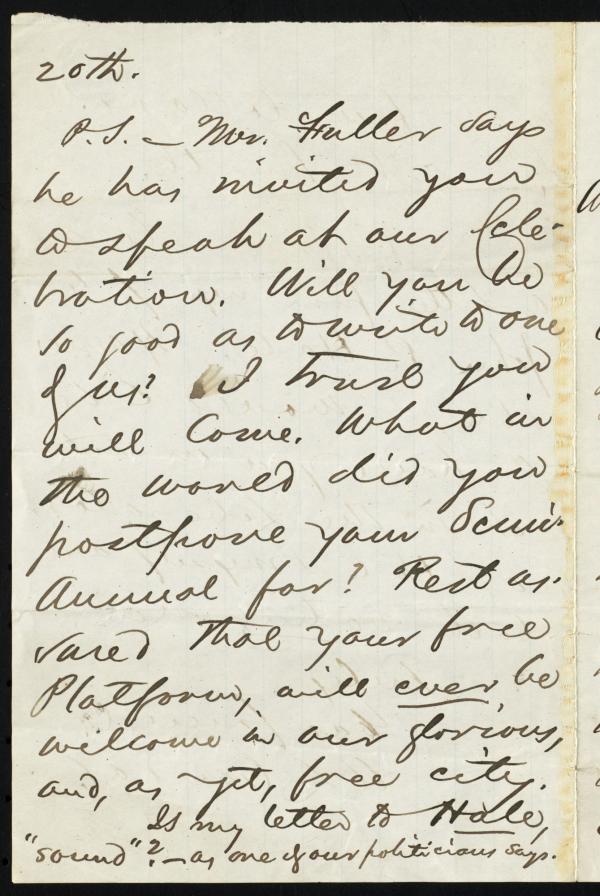 20th.
P.S. — Mr. Fuller says
he has invited you
to speak at our Cele-
bration. Will you be
so good as to write to one
of us? I trust you
will come. What in
the world did you
postpone your Semi-
Annual for? Rest as-
sured that your free
Platform, will ever be
welcome in our glorious,
and, as yet, free city.
Is my letter to Hale,
"sound"? — as one of our politicians says.